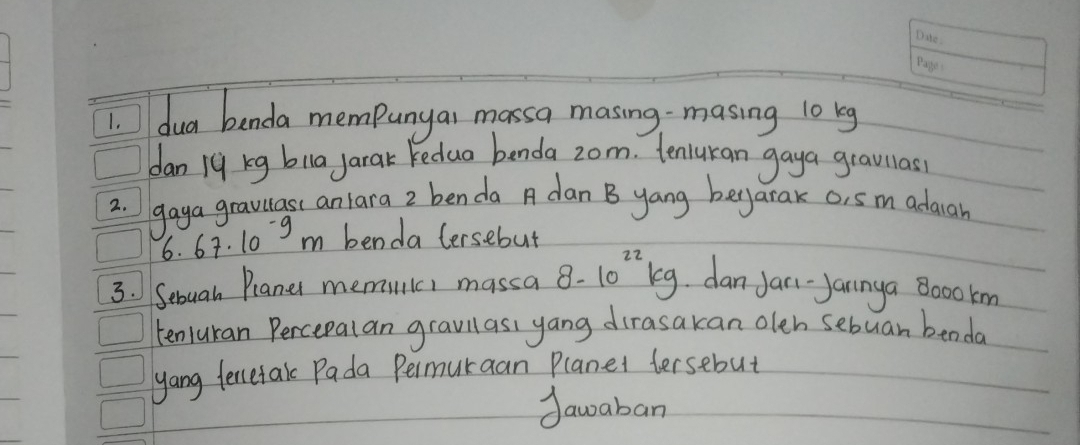 Date:
Page:
1. dua benda mempunyai massa masing-masing 10 kg
dan 14 kg bila jarak kedua benda 20m. tentukan gaya gravitasi
2. gaya gravitasi antara 2 benda A dan B yang berjarak 0,5 m adalah
6.67.10⁻⁹ m benda tersebut
3. Sebuah Planet memiliki massa 8-10²² kg. dan Jari-Jarinya 8000 km
tentukan Percepatan gravitasi yang dirasakan oleh sebuah benda
yang terletak Pada Permukaan Planet tersebut
Jawaban